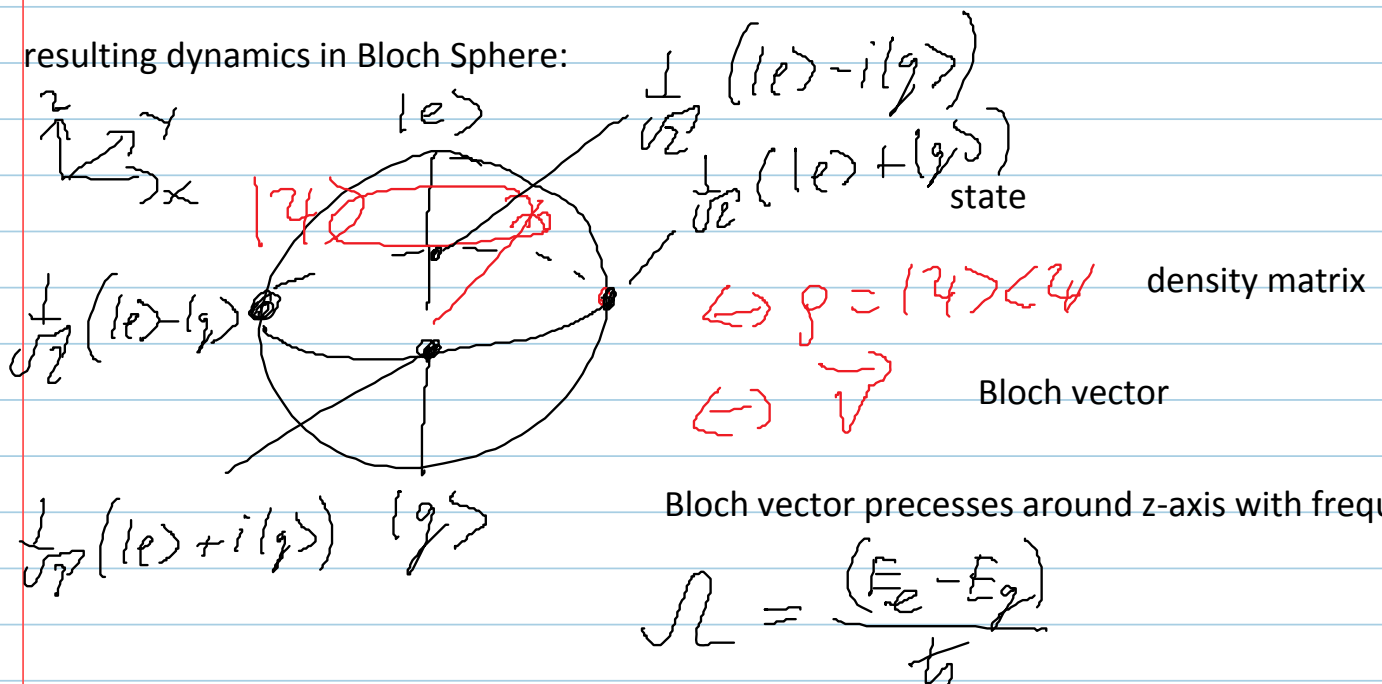 resulting dynamics in Bloch Sphere:
z
y
x
|e>
1/√2 (|e> - i|g>)
1/√2 (|e> + |g>)
state
|ψ>
1/√2 (|e> - |g>)
<-> ρ = |ψ><ψ
density matrix
<-> V⃗
Bloch vector
1/√2 (|e> + i|g>)
|g>
Bloch vector precesses around z-axis with frequ
Ω = (E_e - E_g) / ħ